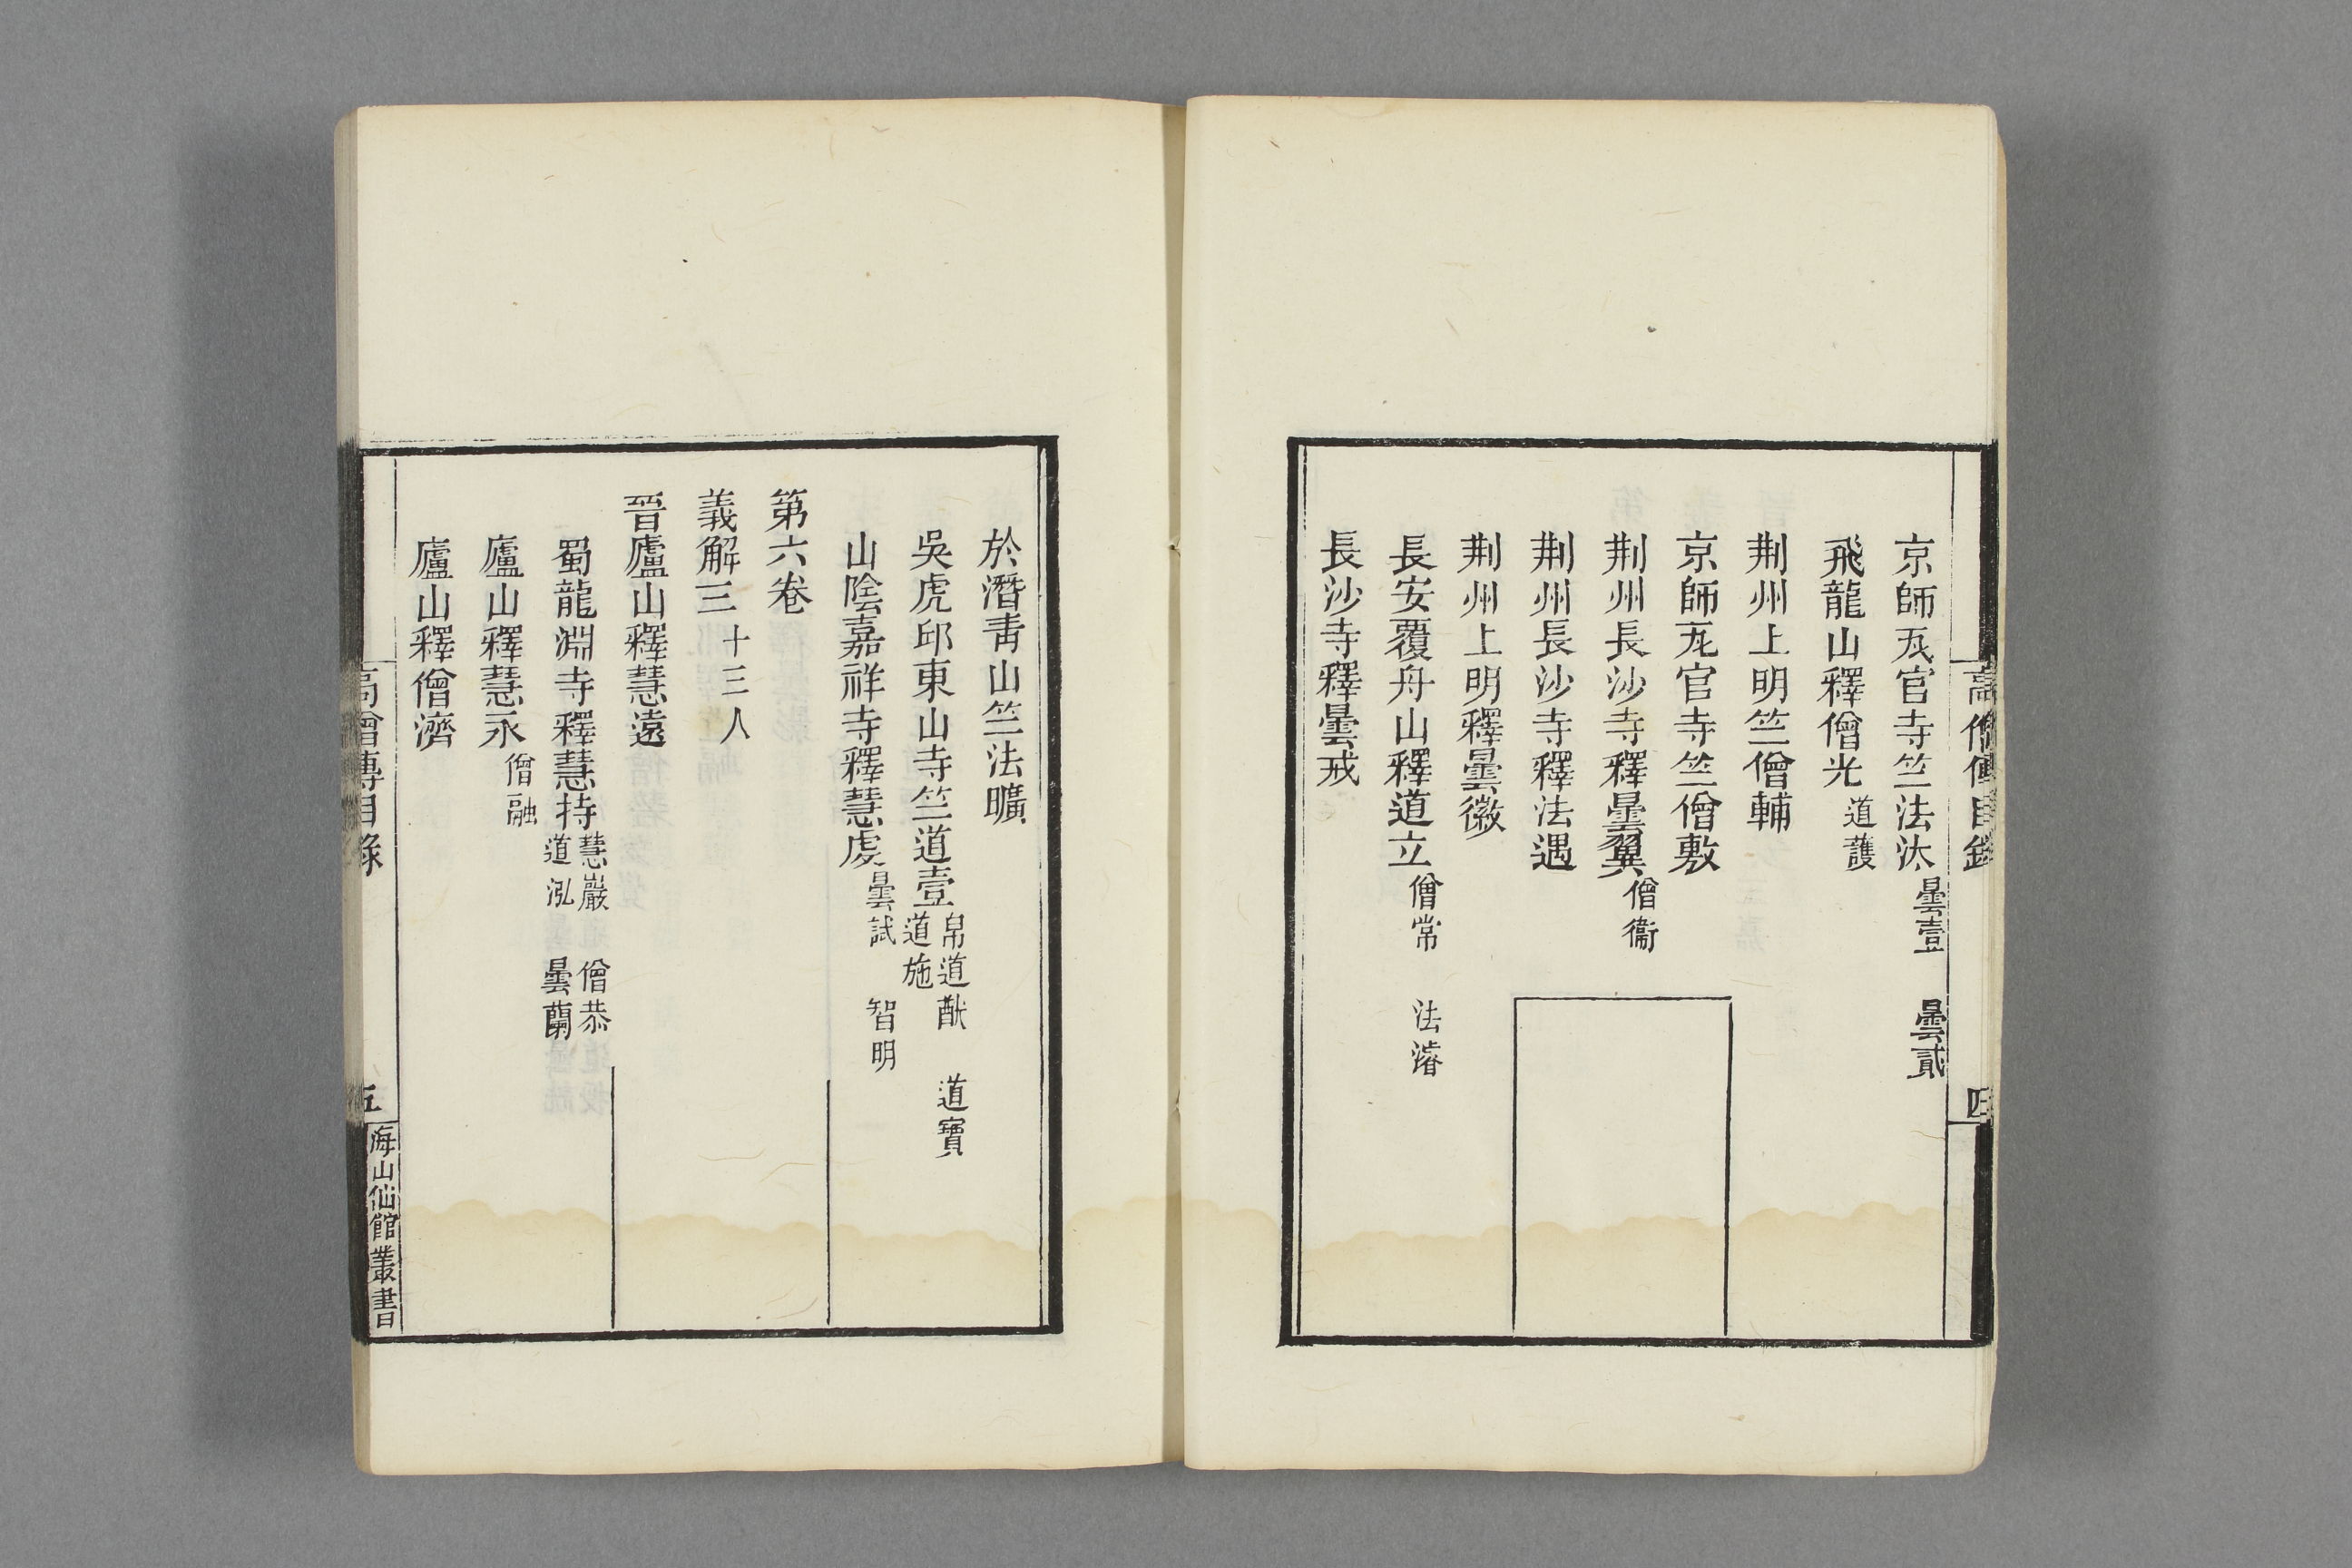 高僧傳目錄
四
京師瓦官寺竺法汰 曇壹 曇貳
飛龍山釋僧光 道護
荆州上明竺僧輔
京師瓦官寺竺僧敷
荆州長沙寺釋曇翼 僧衞
荆州長沙寺釋法遇
荆州上明釋曇徽
長安覆舟山釋道立 僧常 法濬
長沙寺釋曇戒
於潛青山竺法曠
吳虎邱東山寺竺道壹 帛道猷 道寶 道施
山陰嘉祥寺釋慧虔 曇試 智明
第六卷
義解三 十三人
晉廬山釋慧遠
蜀龍淵寺釋慧持 慧巖 僧恭 道泓 曇蘭
廬山釋慧永 僧融
廬山釋僧濟
高僧傳目錄
五
海山仙館叢書